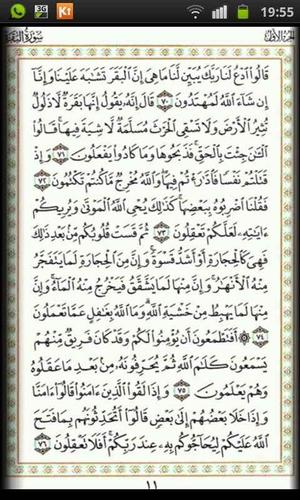 19:55
سُورَةُ البَقَرَةِ
الجُزْءُ الأَوَّلُ
قَالُوا۟ ٱدْعُ لَنَا رَبَّكَ يُبَيِّن لَّنَا مَا هِىَ إِنَّ ٱلْبَقَرَ تَشَٰبَهَ عَلَيْنَا وَإِنَّآ
إِن شَآءَ ٱللَّهُ لَمُهْتَدُونَ ٧٠ قَالَ إِنَّهُۥ يَقُولُ إِنَّهَا بَقَرَةٌ لَّا ذَلُولٌ
تُثِيرُ ٱلْأَرْضَ وَلَا تَسْقِى ٱلْحَرْثَ مُسَلَّمَةٌ لَّا شِيَةَ فِيهَا ۚ قَالُوا۟
ٱلْـَٰٔنَ جِئْتَ بِٱلْحَقِّ ۚ فَذَبَحُوهَا وَمَا كَادُوا۟ يَفْعَلُونَ ٧١ وَإِذْ
قَتَلْتُمْ نَفْسًا فَٱدَّٰرَْٰٔتُمْ فِيهَا ۖ وَٱللَّهُ مُخْرِجٌ مَّا كُنتُمْ تَكْتُمُونَ ٧٢
فَقُلْنَا ٱضْرِبُوهُ بِبَعْضِهَا ۚ كَذَٰلِكَ يُحْىِ ٱللَّهُ ٱلْمَوْتَىٰ وَيُرِيكُمْ
ءَايَٰتِهِۦ لَعَلَّكُمْ تَعْقِلُونَ ٧٣ ثُمَّ قَسَتْ قُلُوبُكُم مِّنۢ بَعْدِ ذَٰلِكَ
فَهِىَ كَٱلْحِجَارَةِ أَوْ أَشَدُّ قَسْوَةً ۚ وَإِنَّ مِنَ ٱلْحِجَارَةِ لَمَا يَتَفَجَّرُ
مِنْهُ ٱلْأَنْهَٰرُ ۚ وَإِنَّ مِنْهَا لَمَا يَشَّقَّقُ فَيَخْرُجُ مِنْهُ ٱلْمَآءُ ۚ وَإِنَّ
مِنْهَا لَمَا يَهْبِطُ مِنْ خَشْيَةِ ٱللَّهِ ۗ وَمَا ٱللَّهُ بِغَٰفِلٍ عَمَّا تَعْمَلُونَ
٧٤ ۞ أَفَتَطْمَعُونَ أَن يُؤْمِنُوا۟ لَكُمْ وَقَدْ كَانَ فَرِيقٌ مِّنْهُمْ
يَسْمَعُونَ كَلَٰمَ ٱللَّهِ ثُمَّ يُحَرِّفُونَهُۥ مِنۢ بَعْدِ مَا عَقَلُوهُ
وَهُمْ يَعْلَمُونَ ٧٥ وَإِذَا لَقُوا۟ ٱلَّذِينَ ءَامَنُوا۟ قَالُوٓا۟ ءَامَنَّا
وَإِذَا خَلَا بَعْضُهُمْ إِلَىٰ بَعْضٍ قَالُوٓا۟ أَتُحَدِّثُونَهُم بِمَا فَتَحَ
ٱللَّهُ عَلَيْكُمْ لِيُحَآجُّوكُم بِهِۦ عِندَ رَبِّكُمْ ۚ أَفَلَا تَعْقِلُونَ ٧٦
١١